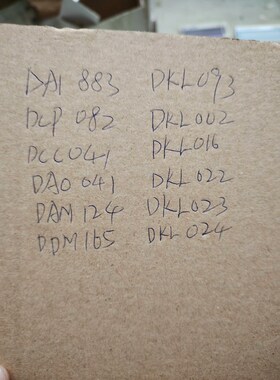 DAI 883 DKL093
DCP 082 DKL002
DCC041 DKL016
DAO 041 DKL022
DAM 124 DKL023
DDM165 DKL024